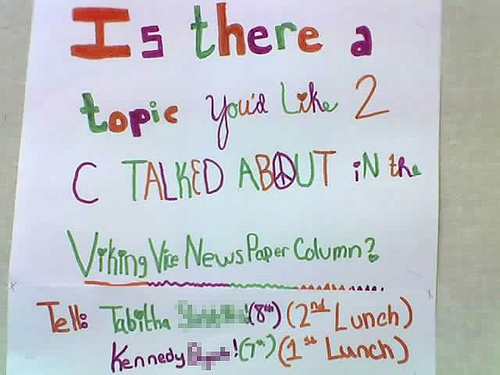 Is there a
topic You'd Like 2
C TALKED ABOUT iN the
Viking Vice News Paper Column?
Tell: Tabitha (8th) (2nd Lunch)
Kennedy ! (7th) (1st Lunch)